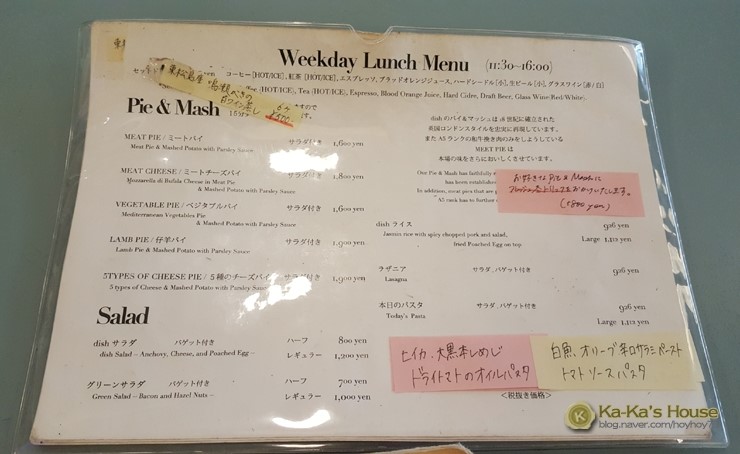 Weekday Lunch Menu (11:30~16:00)
コーヒー[HOT/ICE], 紅茶[HOT/ICE], エスプレッソ, ブラッドオレンジジュース, ハードシードル[小], 生ビール[小], グラスワイン[赤/白]
(HOT/ICE), Tea (HOT/ICE), Espresso, Blood Orange Juice, Hard Cidre, Draft Beer, Glass Wine(Red/White).
白ワイン蒸し
6ヶ
¥500
Pie & Mash
MEAT PIE / ミートパイ サラダ付き 1,600 yen
Meat Pie & Mashed Potato with Parsley Sauce
MEAT CHEESE / ミートチーズパイ サラダ付き 1,800 yen
Mozzarella di Bufala Cheese in Meat Pie
& Mashed Potato with Parsley Sauce
VEGETABLE PIE / ベジタブルパイ サラダ付き 1,600 yen
Mediterranean Vegetables Pie
& Mashed Potato with Parsley Sauce
LAMB PIE / 仔羊パイ サラダ付き 1,900 yen
Lamb Pie & Mashed Potato with Parsley Sauce
5TYPES OF CHEESE PIE / 5種のチーズパイ サラダ付き 1,900 yen
5 types of Cheese & Mashed Potato with Parsley Sauce
Salad
dish サラダ バゲット付き ハーフ 800 yen
dish Salad – Anchovy, Cheese, and Poached Egg – レギュラー 1,200 yen
グリーンサラダ バゲット付き ハーフ 700 yen
Green Salad – Bacon and Hazel Nuts – レギュラー 1,000 yen
dish のパイ&マッシュは 18 世紀に確立された
英国ロンドンスタイルを忠実に再現しています。
また A5 ランクの和牛挽き肉のみをしようしている
MEET PIE は
本場の味をさらにおいしくさせています。
Our Pie & Mash has faithfully
has been established
In addition, meat pies that are
A5 rank has to further
お好きな Pie & Mash に
おかけいたします。
(+800 yen)
dish ライス 926 yen
Jasmin rice with spicy chopped pork and salad, Large 1,112 yen
fried Poached Egg on top
ラザニア サラダ、バゲット付き 926 yen
Lasagna
本日のパスタ サラダ、バゲット付き 926 yen
Today's Pasta
Large 1,112 yen
ヒイカ、大黒本しめじ
ドライトマトのオイルパスタ
白魚、オリーブ 辛口サラミペースト
トマトソースパスタ
<税抜き価格>
Ka-Ka's House
blog.naver.com/hoyhoy7